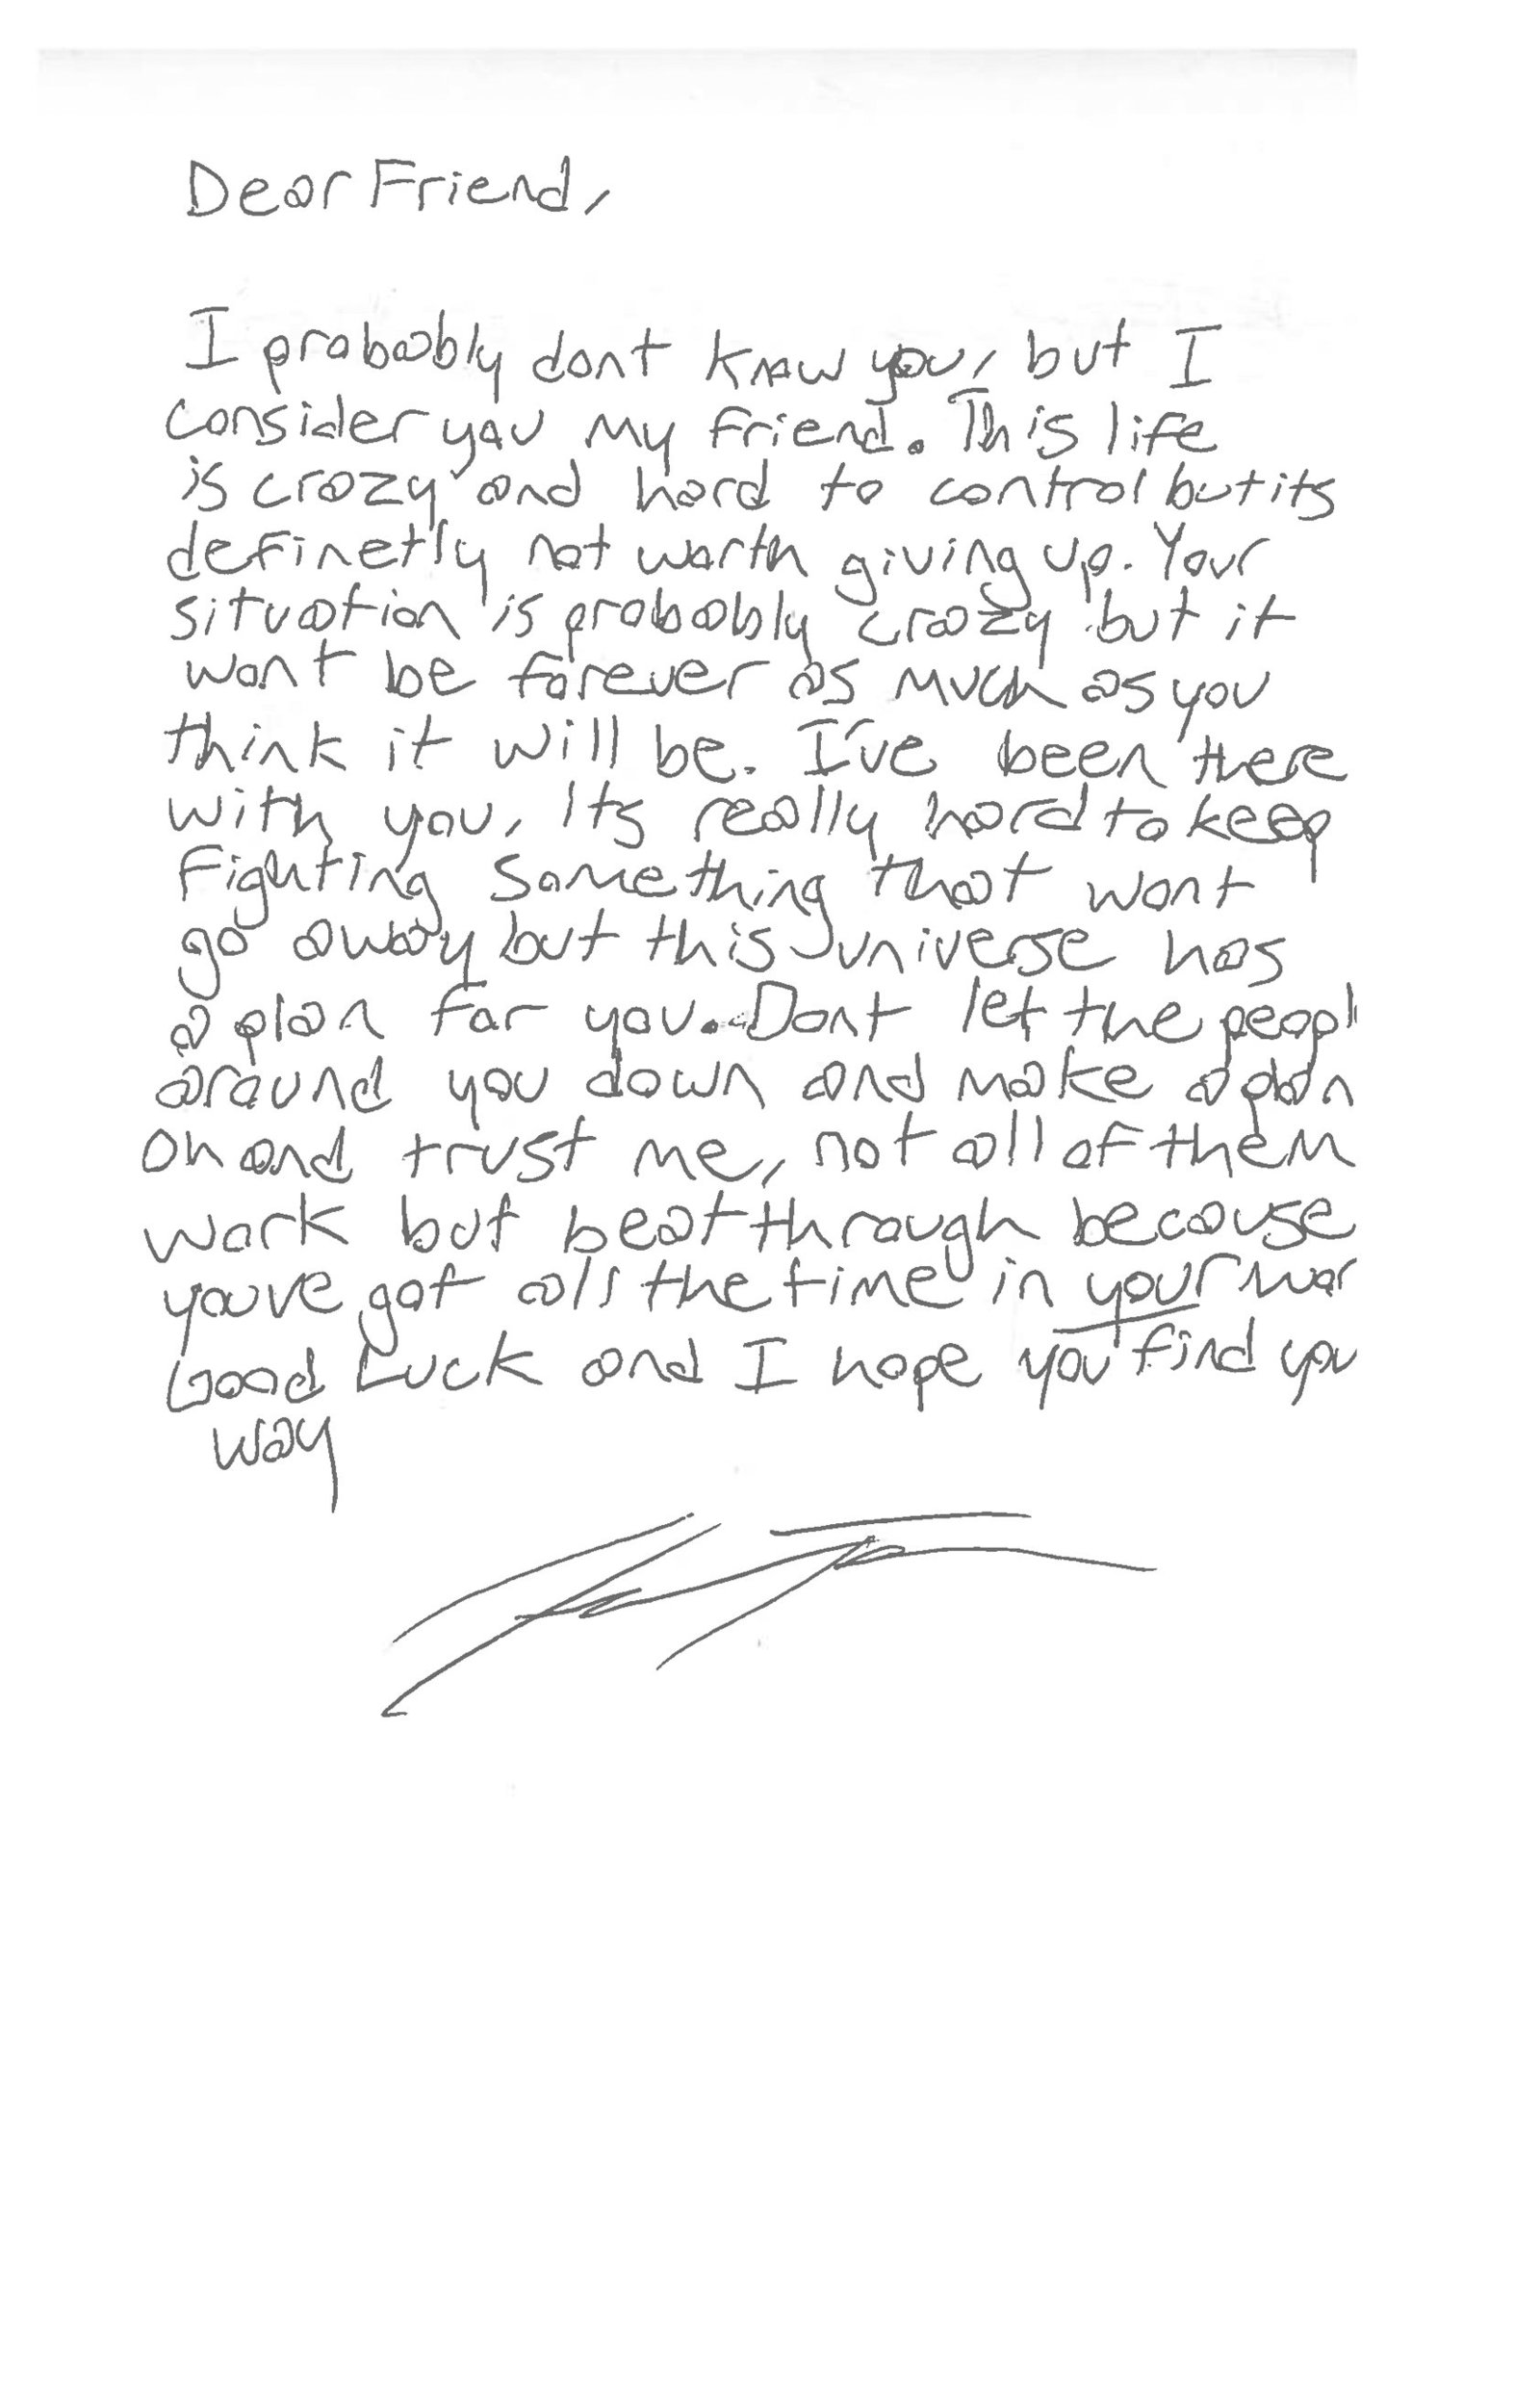 Dear Friend,
I probably dont know you, but I
consider you my friend. This life
is crazy and hard to control but its
definetly not worth giving up. Your
situation is probably crazy but it
wont be forever as much as you
think it will be. I've been there
with you, Its really hard to keep
fighting something that wont
go away but this universe has
a plan for you. Dont let the peopl
around you down and make a plan
Oh and trust me, not all of them
work but beat through because
youve got all the time in your wor
Good Luck and I hope you find you
way